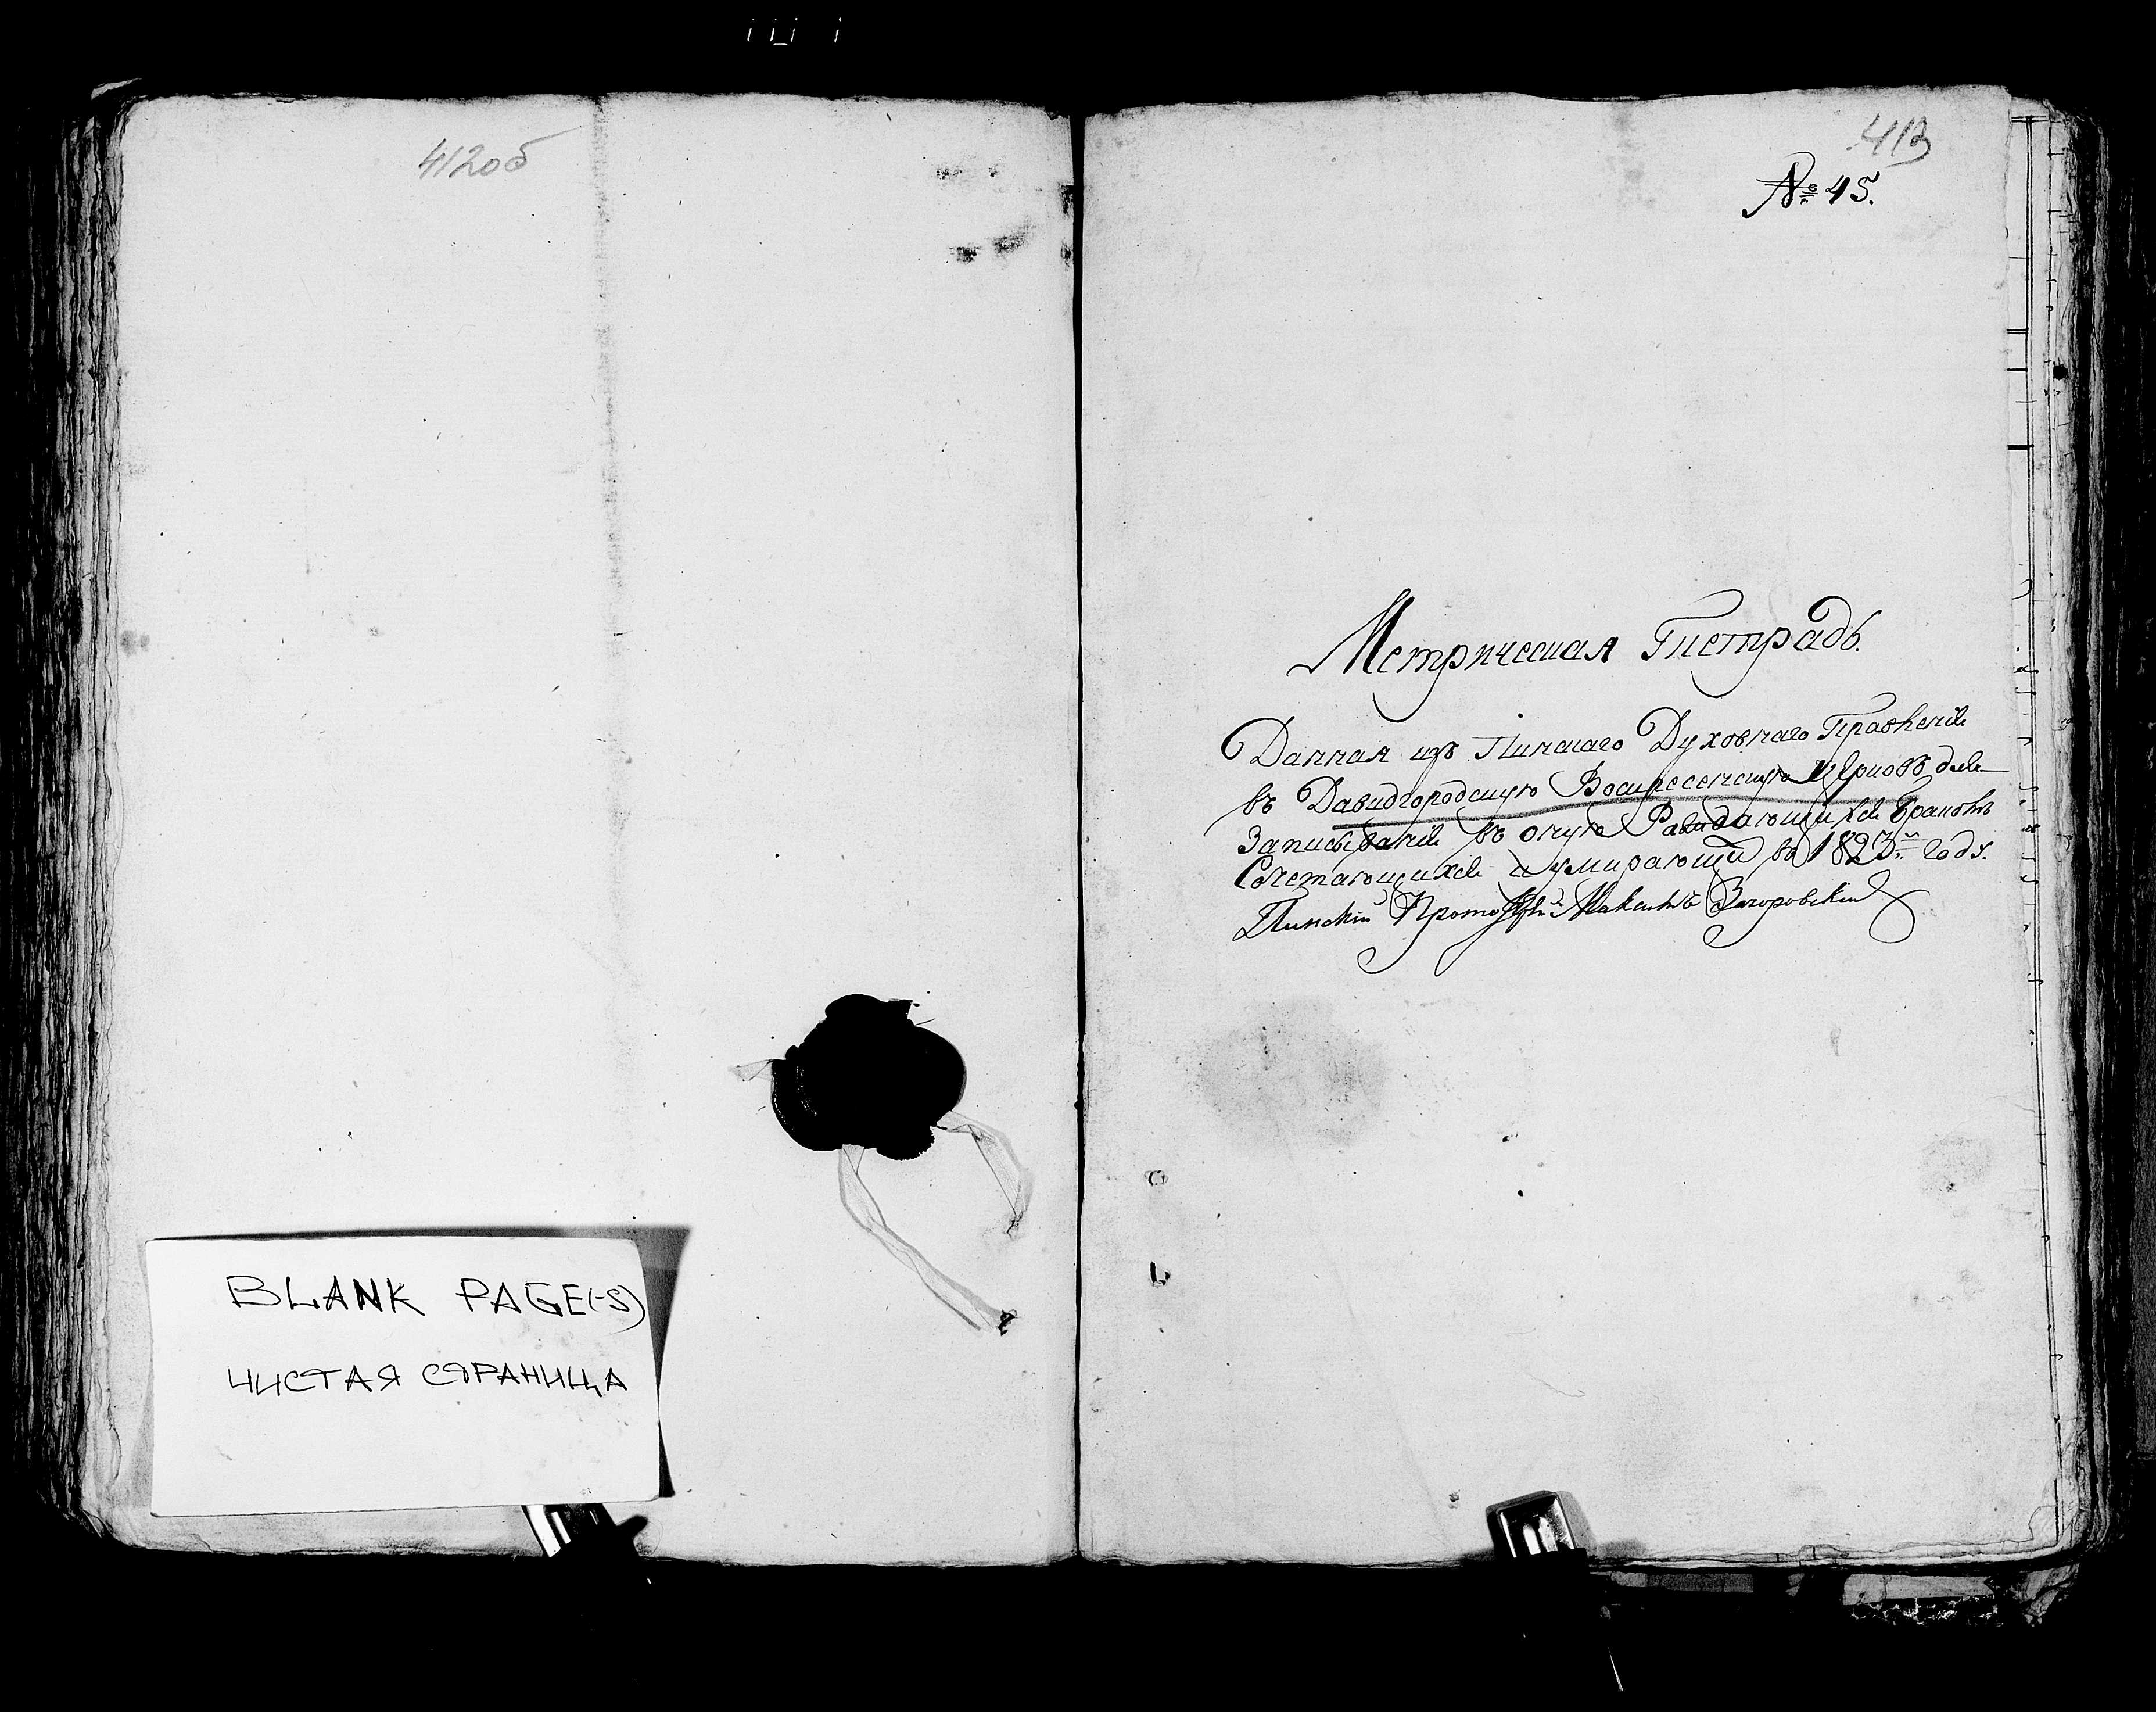 412об
BLANK PAGE(-S)
ЧИСТАЯ СТРАНИЦА
413
№ 45.
Метрическая Тетрадь.
Данная изъ Пинскаго Духовнаго Правленія
въ Давидгородскую Воскресенскую Церковь для
Записыванія въ оную Раждающихся Бракомъ
Сочетающихся и умирающи въ 1823м году.
Пинскій Максимъ Загоровскій